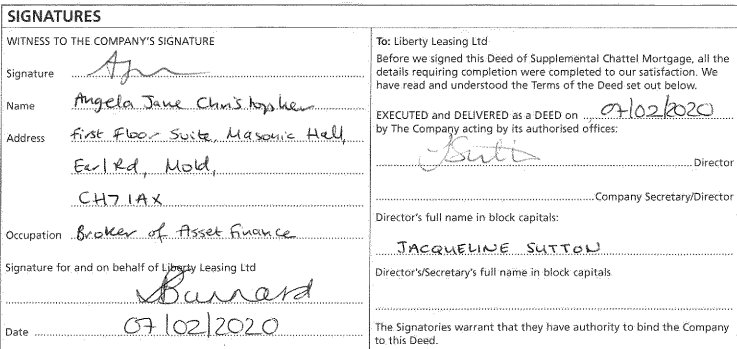 SIGNATURES
WITNESS TO THE COMPANY'S SIGNATURE
Signature
Name Angela Jane Christopher
Address First Floor Suite, Masonic Hall,
Earl Rd, Mold,
CH7 1AX
Occupation Broker of Asset Finance
Signature for and on behalf of Liberty Leasing Ltd
Barnard
Date 07/02/2020
To: Liberty Leasing Ltd
Before we signed this Deed of Supplemental Chattel Mortgage, all the
details requiring completion were completed to our satisfaction. We
have read and understood the Terms of the Deed set out below.
EXECUTED and DELIVERED as a DEED on 07/02/2020
by The Company acting by its authorised offices:
Director
Company Secretary/Director
Director's full name in block capitals:
JACQUELINE SUTTON
Director's/Secretary's full name in block capitals
The Signatories warrant that they have authority to bind the Company
to this Deed.